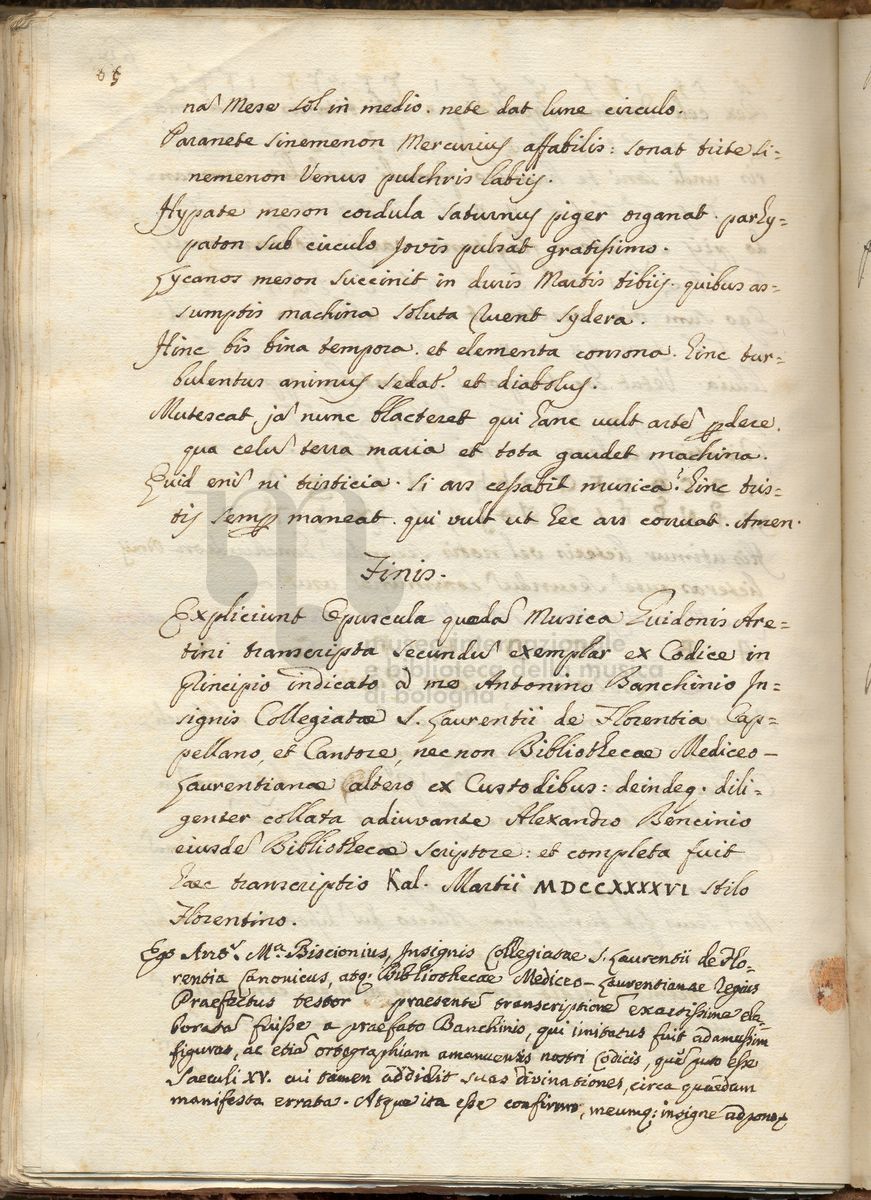 65
na᷃ Mese sol in medio. nete dat lune circulo.
Paranete sinemenon Mercurius affabilis: sonat trite si=
nemenon Venus pulchris labiis.
Hypate meson cordula saturnus piger organat. parhy=
paton sub circulo Jovis pulsat gratissimo.
Lycanos meson succinit in duris Martis tibiis. quibus as=
sumptis machina soluta ruent sydera.
Hinc bis bina tempora. et elementa consona. hinc tur=
bulentus animus sedat᷃. et diabolus.
Mutescat ja᷃ nunc blacteret qui hanc vult arte᷃ ꝑdere.
qua celu᷃ terra maria et tota gaudet machina.
Quid eni᷃ ni tristicia. si ars cessabit musica? hinc tris=
tis semꝑ maneat. qui vult ut hec ars corruat. Amen.
Finis.
Expliciunt Opuscula quæda᷃ Musica Guidonis Are=
tini transcripta secundu᷃ exemplar ex Codice in
Principio indicato a me Antonino Banchinio In=
signis Collegiatæ S. Laurentii de Florentia Cap=
pellano, et Cantore, necnon Bibliothecæ Mediceo-
Laurentianæ altero ex Custodibus: deindeq. dili=
genter collata adiuvante Alexandro Bencinio
eiusde᷃ Bibliothecæ scriptore: et completa fuit
hæc transcriptio Kal. Martii MDCCXXXXVI stilo
Florentino.
Ego Ant.s M.a Biscionius, Insignis Collegiatae S. Laurentii de Flo-
rentia Canonicus, atq. Bibliothecae Mediceo-Laurentianae Regius
Praefectus testor praesente᷃ transcriptione᷃ exactissime ela-
borata᷃ fuisse a praefato Banchinio, qui imitatus fuit adamussim
figuras, ac etia᷃ ortographiam amanuensis nostri Codicis, que᷃ puto esse
Saeculi XV. cui tamen addidit suas divinationes, circa quaedam
manifesta errata. Atque ita esse confirmo, meumq; insigne adpono
museo internazionale
e biblioteca della musica
di bologna